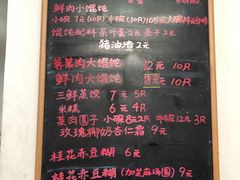 鲜肉小馄饨
小碗7元(20只) 中碗(30只)10.5元 大碗
馄饨配料 茶叶蛋2元 茶干2元
猪油渣2元
荠菜肉大馄饨 12元 10只
鲜肉大馄饨 10只
三鲜蒸饺 7元 5只
米糕 6元 4只
菜肉圆子 小碗8元2只 中碗12元3只
玫瑰椰奶杏仁霜 9元
桂花赤豆糊 6元
桂花赤豆糊(加芝麻汤圆) 9元